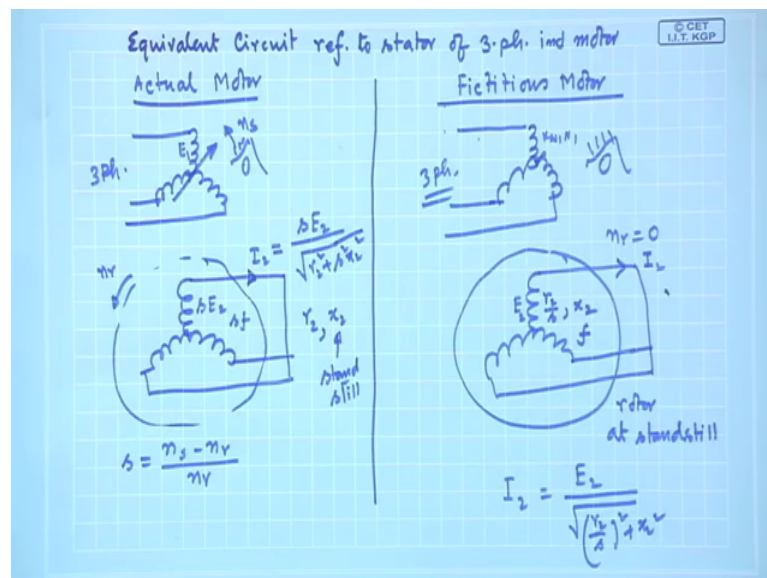 Equivalent Circuit ref. to stator of 3-ph. ind motor
© CET
I.I.T. KGP
Actual Motor
3 ph.
E₁
nₛ
nᵣ
sE₂
sf
I₂ = sE₂ / √(r₂² + s²x₂²)
r₂, x₂
stand
still
s = (nₛ - nᵣ) / nᵣ
Fictitious Motor
3 ph.
nᵣ = 0
I₂
E₂
r₂/s, x₂
f
rotor
at standstill
I₂ = E₂ / √((r₂/s)² + x₂²)